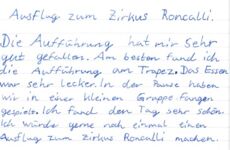 Ausflug zum Zirkus Roncalli.
Die Aufführung hat mir sehr
gut gefallen. Am besten fand ich
die Aufführung am Trapez. Das Essen
war sehr lecker. In der Pause haben
wir in einer kleinen Gruppe Fangen
gespielt. Ich fand den Tag sehr schön.
Ich würde gerne noch einmal einen
Ausflug zum Zirkus Roncalli machen.